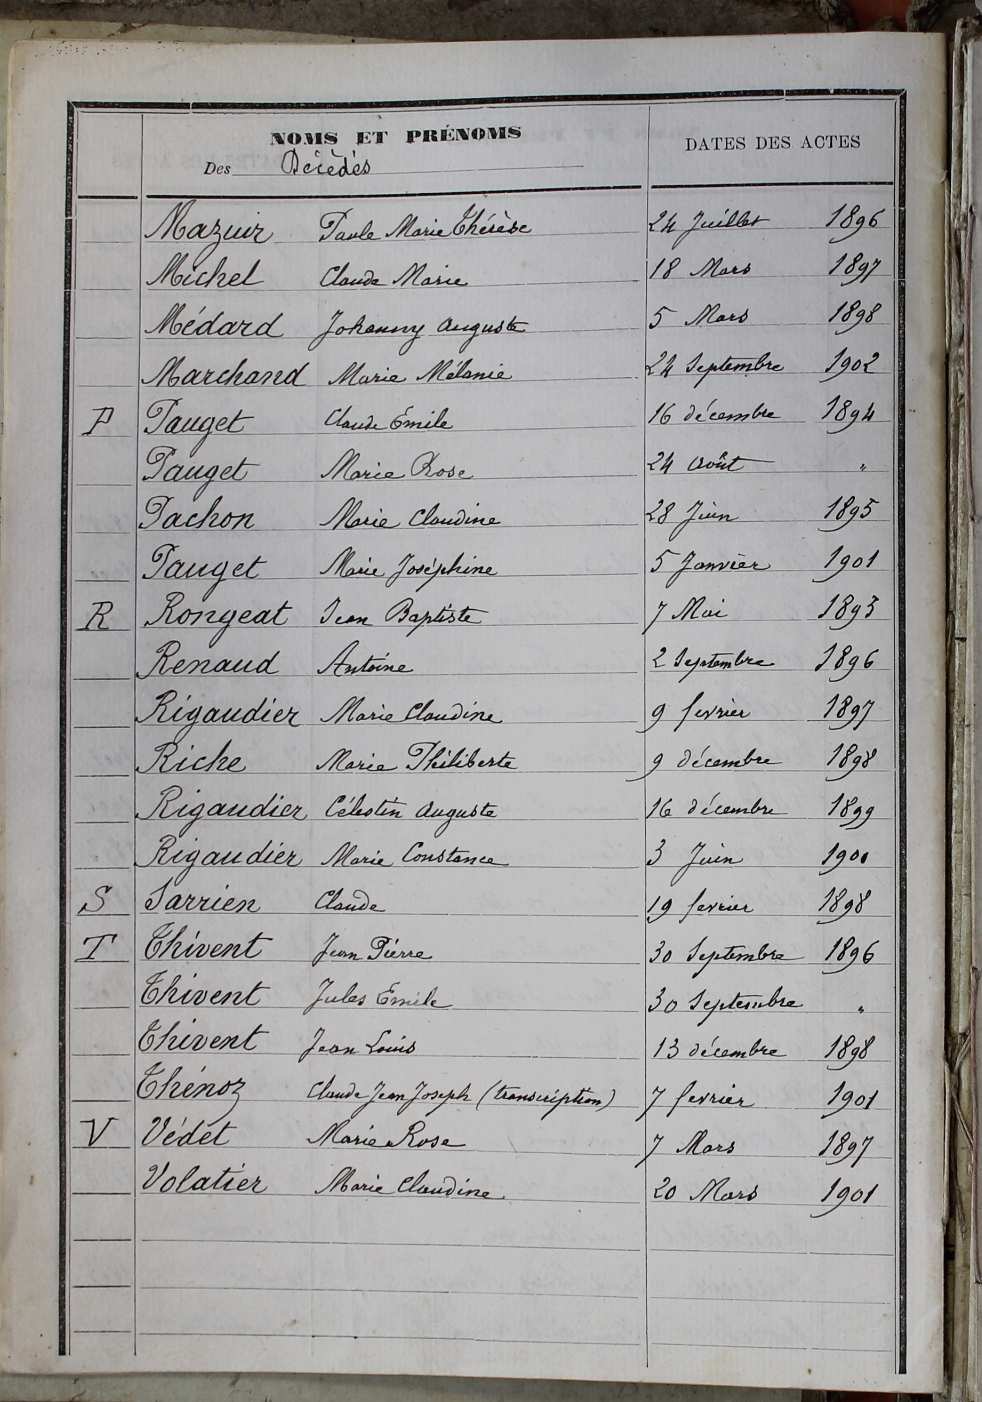 NOMS ET PRÉNOMS DATES DES ACTES
Des Décèdés
Mazuir Paule Marie Thérèse 24 Juillet 1896
Michel Claude Marie 18 Mars 1897
Médard Johanny Auguste 5 Mars 1898
Marchand Marie Mélanie 24 Septembre 1902
P Pauget Claude Émile 16 décembre 1894
Pauget Marie Rose 24 Août "
Pachon Marie Claudine 28 Juin 1895
Pauget Marie Joséphine 5 Janvier 1901
R Rongeat Jean Baptiste 7 Mai 1893
Renaud Antoine 2 Septembre 1896
Rigaudier Marie Claudine 9 fevrier 1897
Riche Marie Philiberte 9 décembre 1898
Rigaudier Célestin Auguste 16 décembre 1899
Rigaudier Marie Constance 3 Juin 1900
S Sarrien Claude 19 fevrier 1898
T Thivent Jean Pierre 30 Septembre 1896
Thivent Jules Emile 30 Septembre "
Thivent Jean Louis 13 décembre 1898
Thénoz Claude Jean Joseph (transcription) 7 fevrier 1901
V Védet Marie Rose 7 Mars 1897
Volatier Marie Claudine 20 Mars 1901